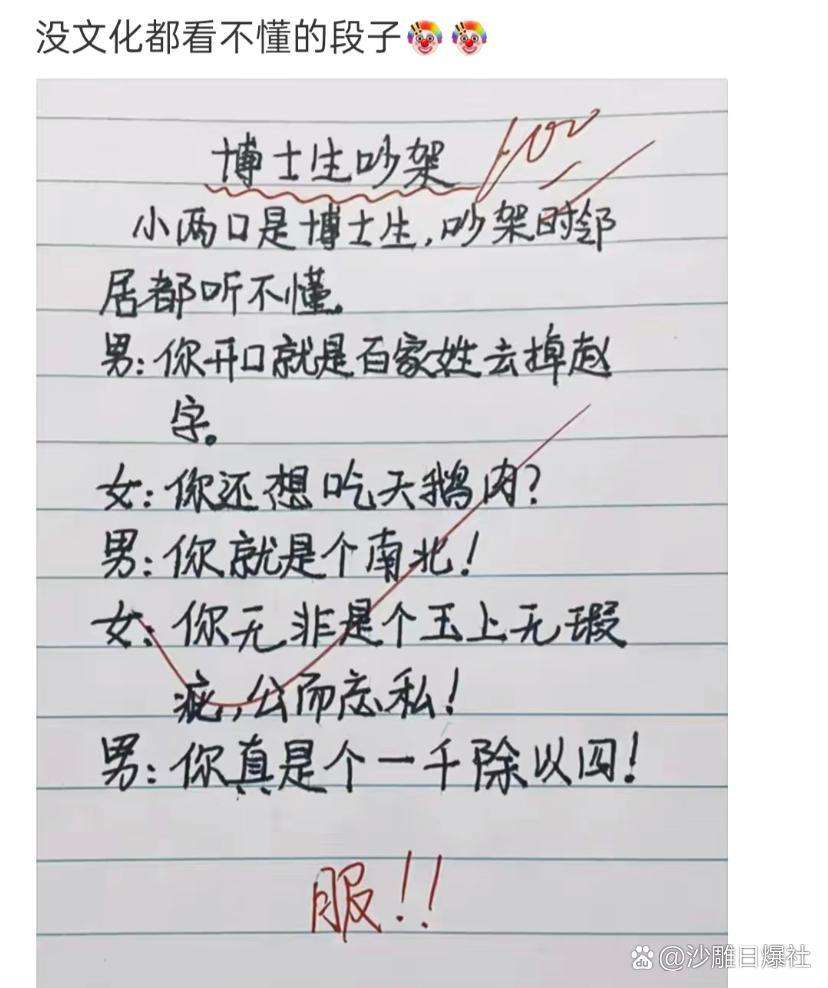 没文化都看不懂的段子🤡🤡
博士生吵架 100
小两口是博士生,吵架时邻
居都听不懂。
男:你开口就是百家姓去掉赵
字。
女:你还想吃天鹅肉?
男:你就是个南北!
女:你无非是个玉上无瑕
疵,公而忘私!
男:你真是个一千除以四!
服!!
Baidu @沙雕日爆社